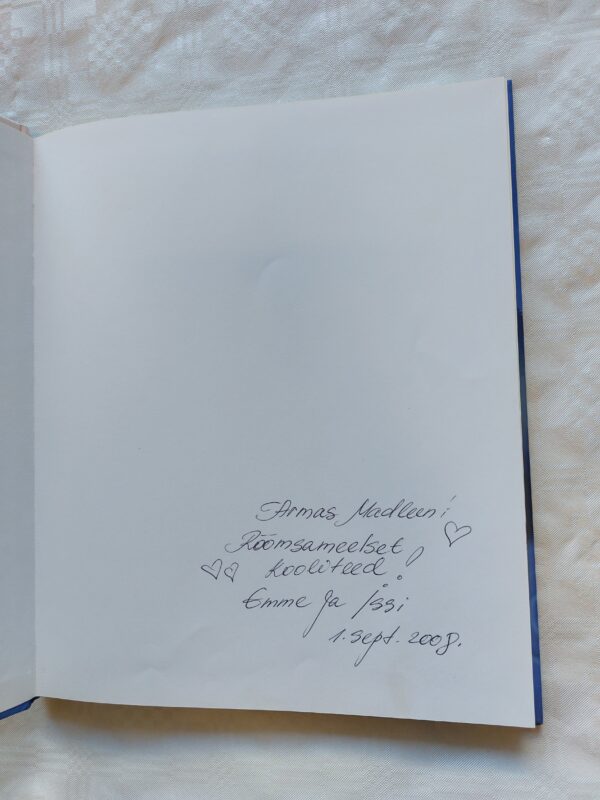 Armas Madleen!
Rõõmsameelset
kooliteed!
Emme ja Issi
1. sept. 2008.